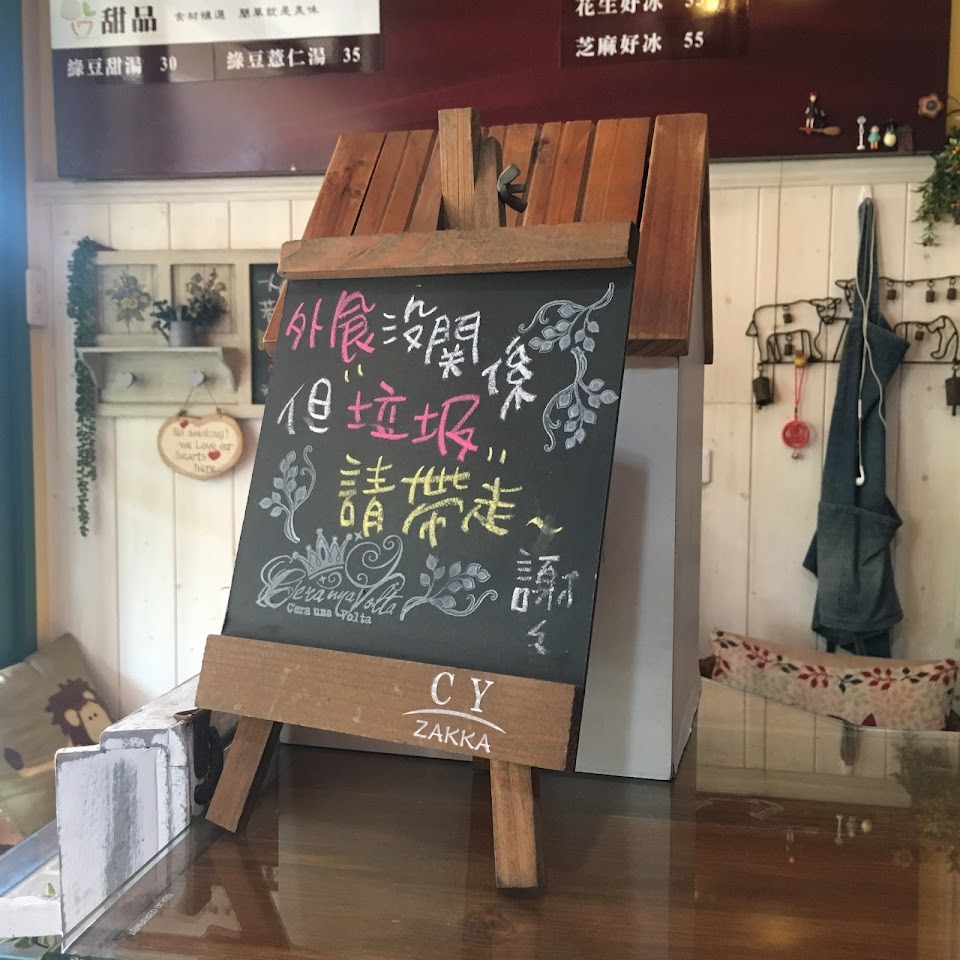 甜品 食材嚴選 簡單就是美味
綠豆甜湯 30 綠豆薏仁湯 35
花生好冰 55
芝麻好冰 55
外食沒關係
但"垃圾"
請帶走~
謝々
Cera nya Volta
Cera una Volta
C Y
ZAKKA
No smoking!
we Love our
hearts
here